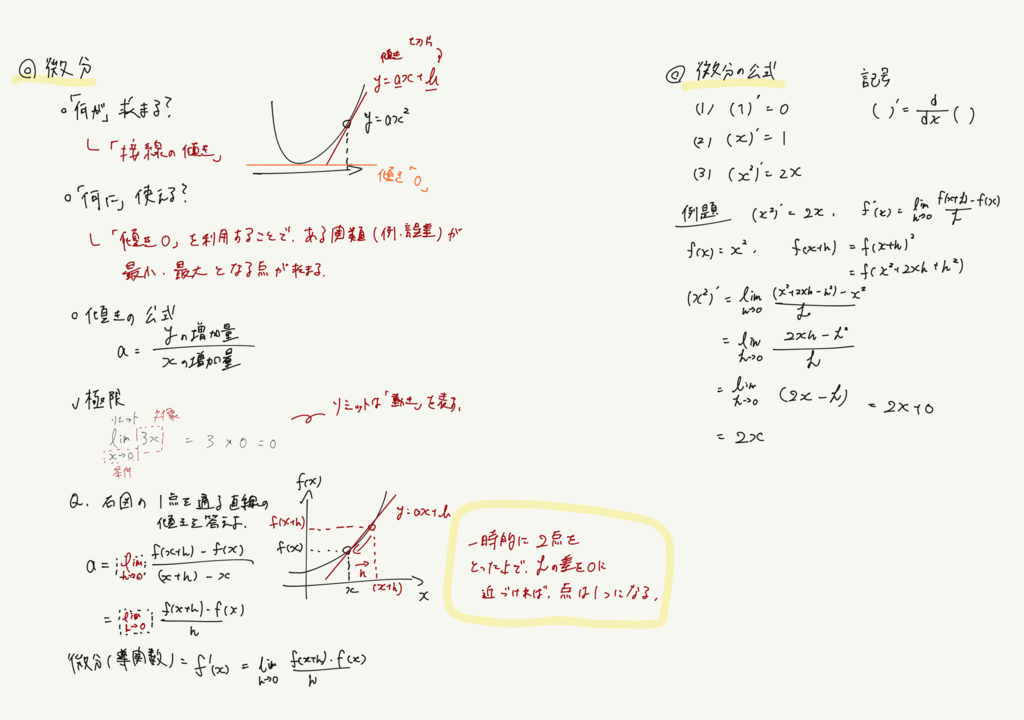 ◎ 微分
○「何が」求まる?
└「接線の傾き」
傾き 切片
y=ax+b
y=ax²
傾き「0」
○「何に」使える?
└「傾き0」を利用することで、ある関数(例.誤差)が
最小、最大となる点が求まる.
○ 傾きの公式
a = yの増加量 / xの増加量
✓極限
リミット 対象
lim x→0 3x = 3 × 0 = 0
条件
リミットは「動き」を表す.
Q. 右図の1点を通る直線の
傾きを答えよ.
a = lim h→0 f(x+h) - f(x) / (x+h) - x
= lim h→0 f(x+h) - f(x) / h
微分(導関数) = f'(x) = lim h→0 f(x+h) - f(x) / h
f(x)
y=ax+b
f(x+h)
f(x)
h
x
(x+h)
x
一時的に2点を
とった上で、hの差を0に
近づければ、点は1つになる.
◎ 微分の公式
(1) (1)' = 0
(2) (x)' = 1
(3) (x²)' = 2x
記号
( )' = d/dx ( )
例題 (x²)' = 2x, f'(x) = lim h→0 f(x+h) - f(x) / h
f(x) = x², f(x+h) = f(x+h)²
= f(x²+2xh+h²)
(x²)' = lim h→0 (x²+2xh-h²) - x² / h
= lim h→0 2xh - h² / h
= lim h→0 (2x - h) = 2x+0
= 2x